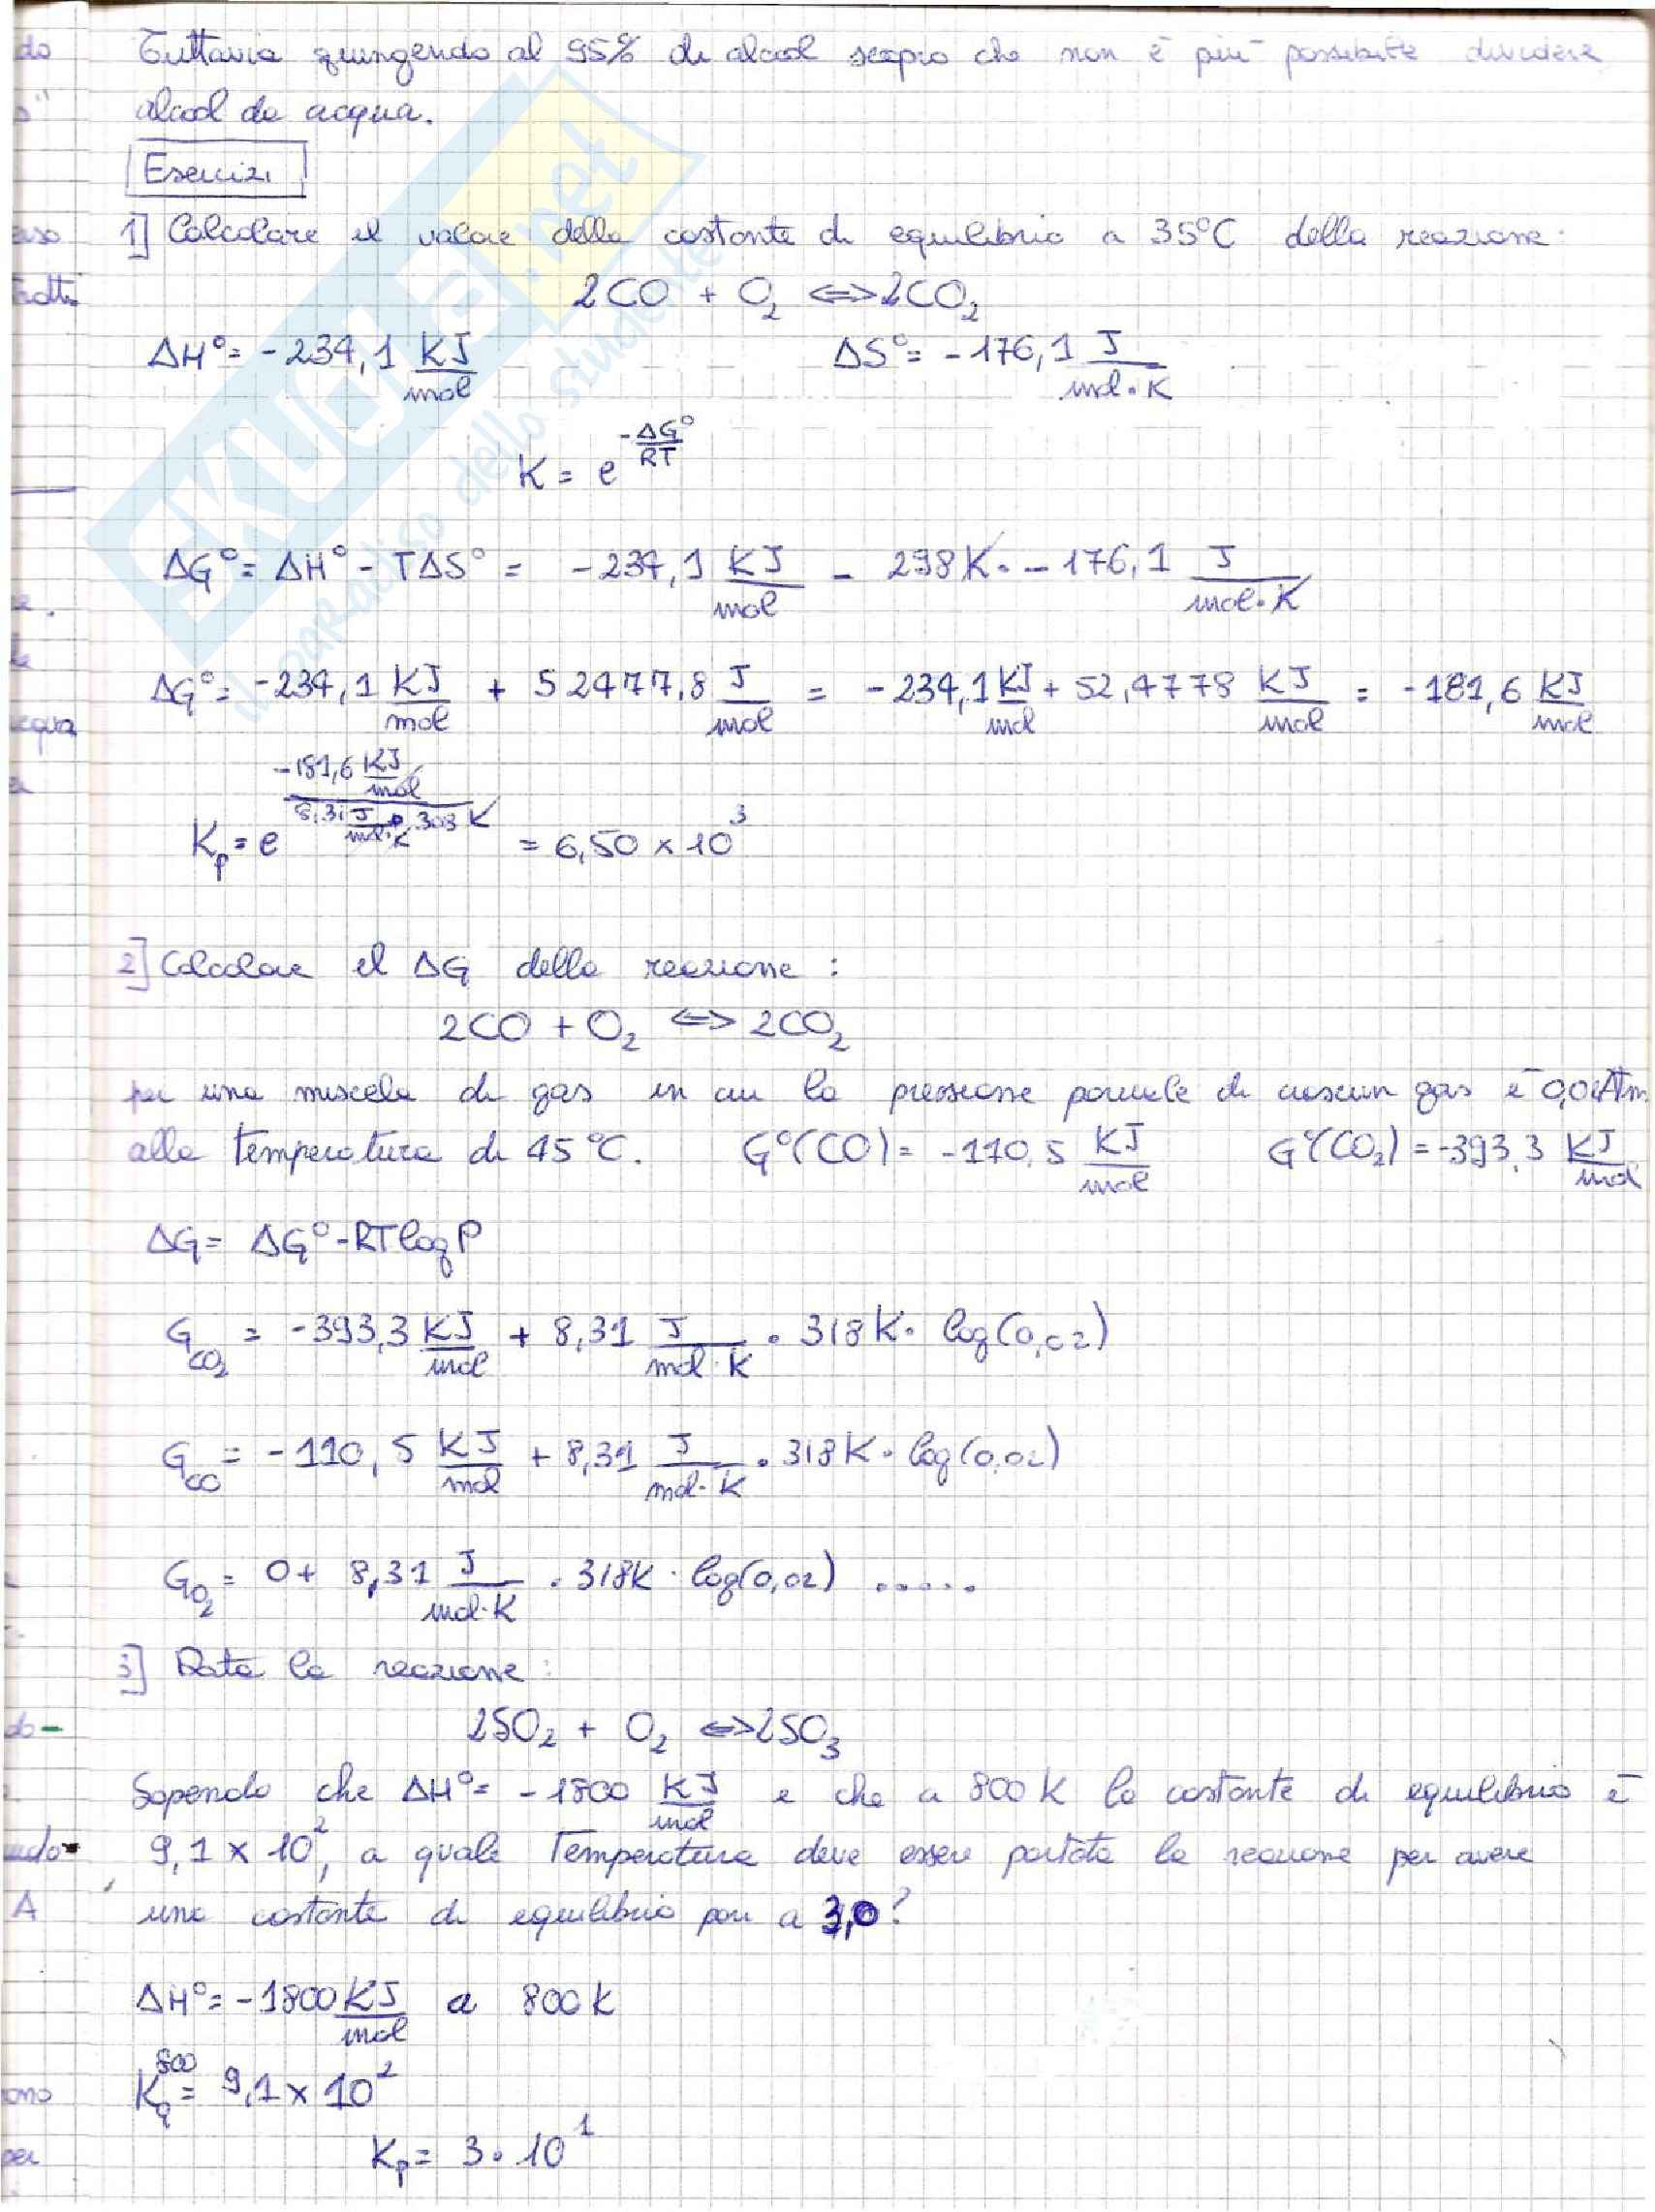 Tuttavia giungendo al 95% di alcool scopro che non è più possibile dividere
alcool da acqua.
Esercizi
1] Calcolare il valore della costante di equilibrio a 35°C della reazione:
2CO + O₂ <=> 2CO₂
ΔH° = -234,1 KJ/mol ΔS° = -176,1 J/mol·K
K = e^(-ΔG°/RT)
ΔG° = ΔH° - TΔS° = -234,1 KJ/mol - 298K · -176,1 J/mol·K
ΔG° = -234,1 KJ/mol + 52477,8 J/mol = -234,1 KJ/mol + 52,4778 KJ/mol = -181,6 KJ/mol
Kp = e^(-181,6 KJ/mol / 8,31 J/mol·K · 303 K) = 6,50 × 10³
2] Calcolare il ΔG della reazione:
2CO + O₂ <=> 2CO₂
per una miscela di gas in cui la pressione parziale di ciascun gas è Atm
alla temperatura di 45°C. G°(CO) = -110,5 KJ/mol G°(CO₂) = -393,3 KJ/mol
ΔG = ΔG° - RT log P
G CO₂ = -393,3 KJ/mol + 8,31 J/mol·K · 318K · log(0,02)
G CO = -110,5 KJ/mol + 8,31 J/mol·K · 318K · log(0,02)
G O₂ = 0 + 8,31 J/mol·K · 318K · log(0,02) .....
3] Data la reazione:
2SO₂ + O₂ <=> 2SO₃
Sapendo che ΔH° = -1800 KJ/mol e che a 800 K la costante di equilibrio è
9,1 × 10², a quale Temperatura deve essere portata la reazione per avere
una costante di equilibrio pari a 3,0?
ΔH° = -1800 KJ/mol a 800 K
K⁸⁰⁰ = 9,1 × 10²
Kp = 3 · 10¹
SKUOLA.net
il paradiso dello studente